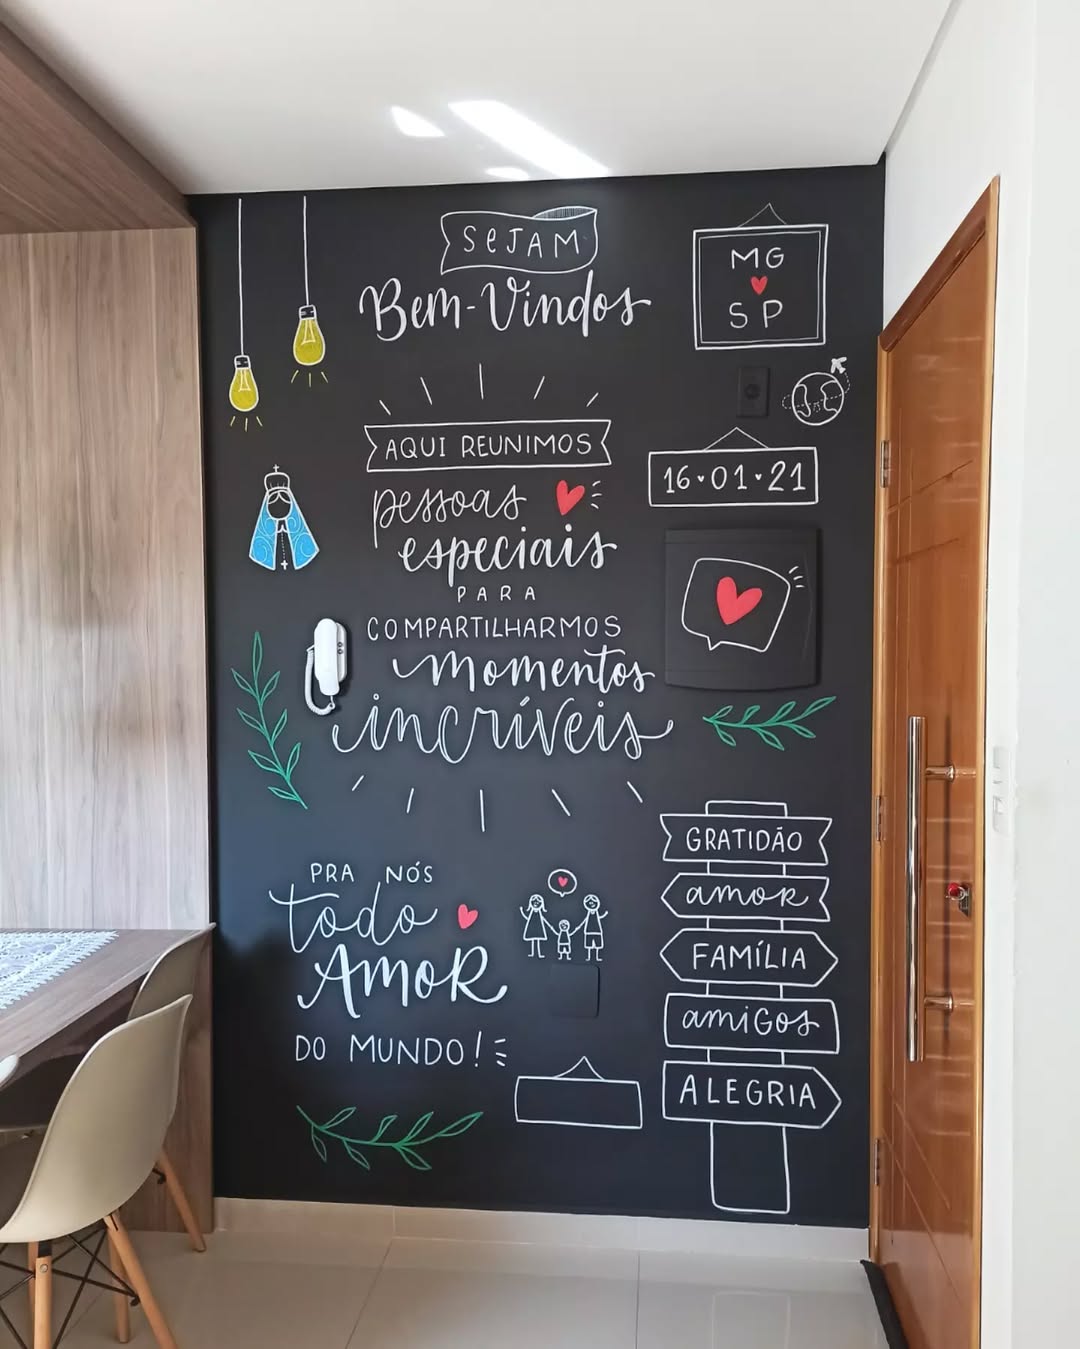 SEJAM
Bem-Vindos
MG
SP
AQUI REUNIMOS
pessoas
especiais
PARA
COMPARTILHARMOS
momentos
incríveis
16·01·21
PRA NÓS
todo
AMOR
DO MUNDO!
GRATIDÃO
amor
FAMÍLIA
amigos
ALEGRIA